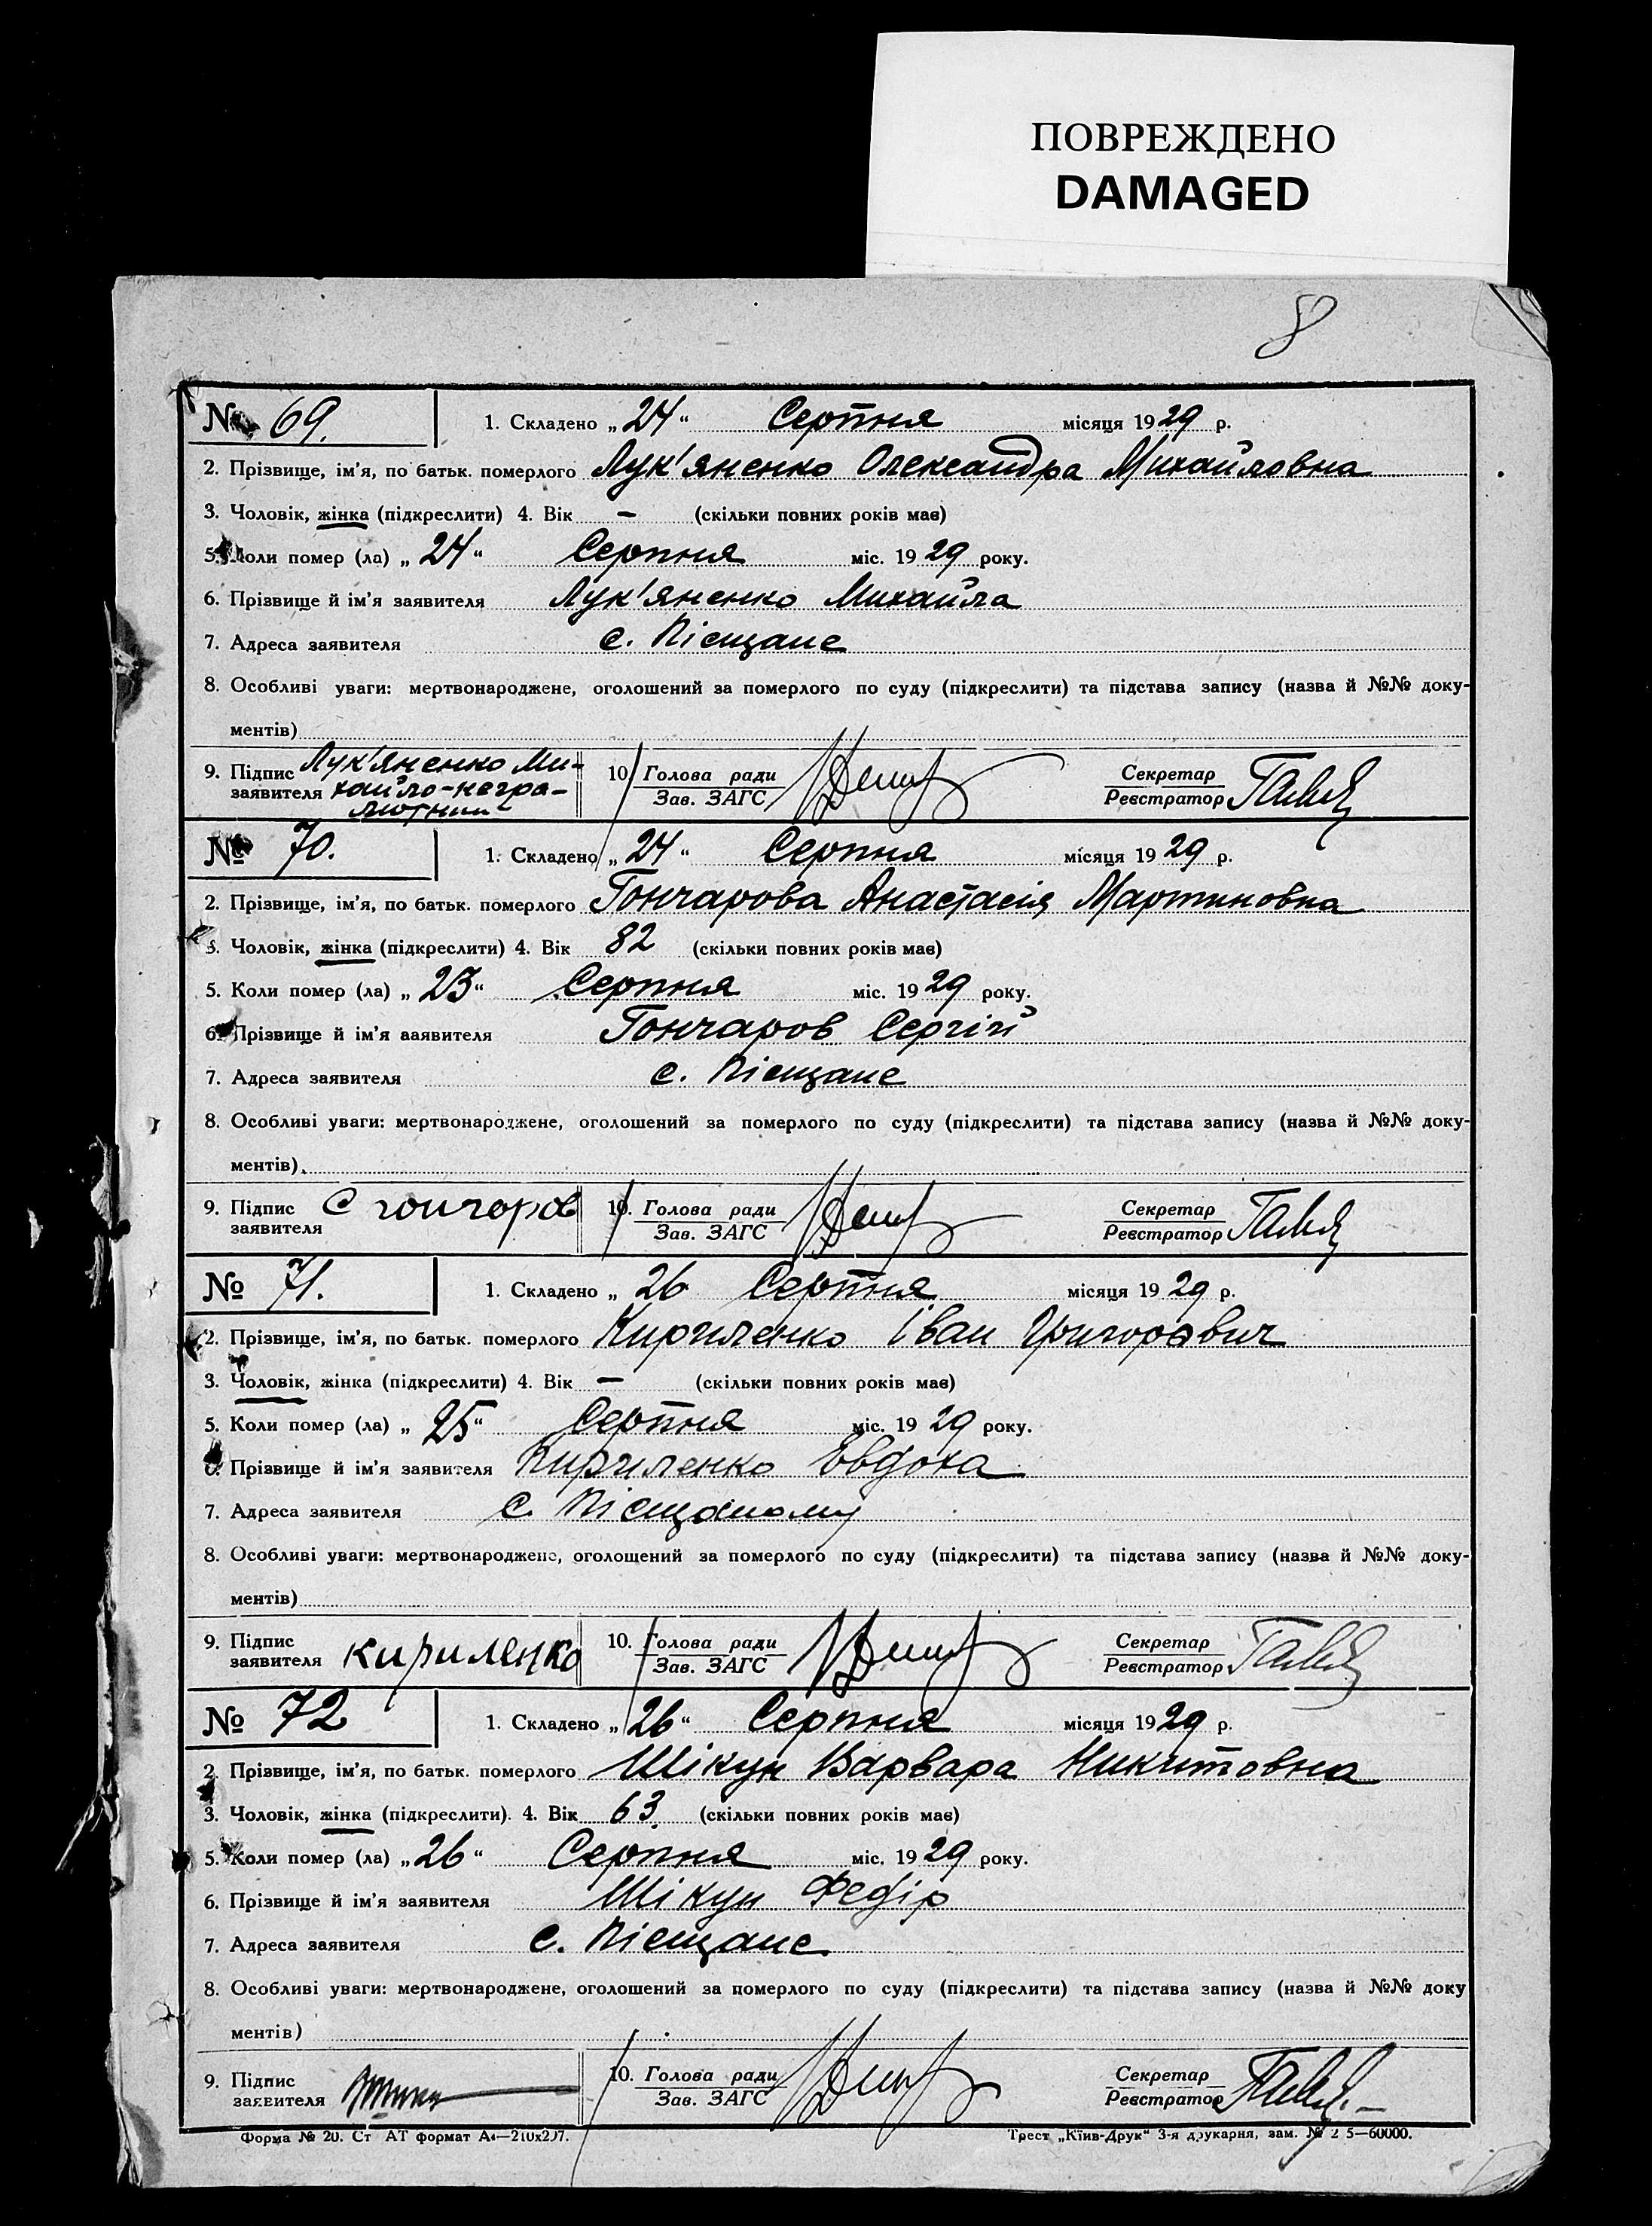 ПОВРЕЖДЕНО
DAMAGED
8
№ 69. 1. Складено „ 24 “ Серпня місяця 1929 р.
2. Прізвище, ім'я, по батьк. померлого Лук'яненко Олександра Михайловна
3. Чоловік, жінка (підкреслити) 4. Вік – (скільки повних років має)
5. Коли помер (ла) „ 24 “ Серпня міс. 1929 року.
6. Прізвище й ім'я заявителя Лук'яненко Михайла
7. Адреса заявителя с. Пісщане
8. Особливі уваги: мертвонароджене, оголошений за померлого по суду (підкреслити) та підстава запису (назва й №№ доку-
ментів)
9. Підпис заявителя Лук'яненко Ми-
хайло-негра-
мотний
10. Голова ради
Зав. ЗАГС
Секретар
Реєстратор
№ 70. 1. Складено „ 24 “ Серпня місяця 1929 р.
2. Прізвище, ім'я, по батьк. померлого Гончарова Анастасія Мартиновна
3. Чоловік, жінка (підкреслити) 4. Вік 82 (скільки повних років має)
5. Коли помер (ла) „ 23 “ Серпня міс. 1929 року.
6. Прізвище й ім'я заявителя Гончаров Сергій
7. Адреса заявителя с. Пісщане
8. Особливі уваги: мертвонароджене, оголошений за померлого по суду (підкреслити) та підстава запису (назва й №№ доку-
ментів)
9. Підпис заявителя С гончоров
10. Голова ради
Зав. ЗАГС
Секретар
Реєстратор
№ 71. 1. Складено „ 26 Серпня місяця 1929 р.
2. Прізвище, ім'я, по батьк. померлого Кириленко Іван Григорович
3. Чоловік, жінка (підкреслити) 4. Вік – (скільки повних років має)
5. Коли помер (ла) „ 25 “ Серпня міс. 1929 року.
6. Прізвище й ім'я заявителя Кириленко Евдоха
7. Адреса заявителя с. Пісщаному
8. Особливі уваги: мертвонароджене, оголощений за померлого по суду (підкреслити) та підстава запису (назва й №№ доку-
ментів)
9. Підпис заявителя кириленко
10. Голова ради
Зав. ЗАГС
Секретар
Реєстратор
№ 72 1. Складено „ 26 “ Серпня місяця 1929 р.
2. Прізвище, ім'я, по батьк. померлого Шікун Варвара Никитовна
3. Чоловік, жінка (підкреслити). 4. Вік 63. (скільки повних років має)
5. Коли помер (ла) „ 26 “ Серпня міс. 1929 року.
6. Прізвище й ім'я заявителя Шікун Федір
7. Адреса заявителя с. Пісщане
8. Особливі уваги: мертвонароджене, оголошений за померлого по суду (підкреслити) та підстава запису (назва й №№ доку
ментів)
9. Підпис заявителя
10. Голова ради
Зав. ЗАГС
Секретар
Реєстратор
Форма № 20. Ст АТ формат А4—210х297. Трест „Київ-Друк“ 3-я друкарня, зам. № 5—60000.